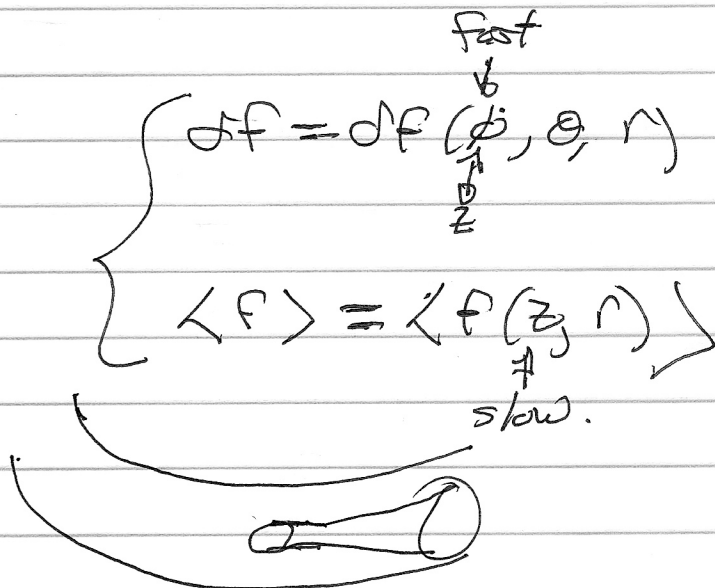 fast
δf = δf(φ, θ, r)
z
<f> = <f(z, r)>
slow.